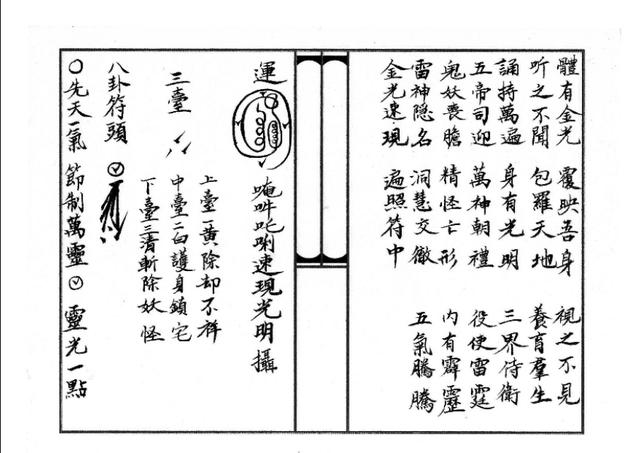 體有金光 覆映吾身 視之不見
听之不聞 包羅天地 養育羣生
誦持萬遍 身有光明 三界侍衛
五帝司迎 萬神朝禮 役使雷霆
鬼妖喪膽 精怪亡形 內有霹靂
雷神隐名 洞慧交徹 五氣騰騰
金光速現 遍照符中
運 唵吽吒唎速現光明攝
三臺
上臺一黃除却不祥
中臺二白護身鎖宅
下臺三清斬除妖怪
八卦符頭
○先天一氣 節制萬靈 靈光一點